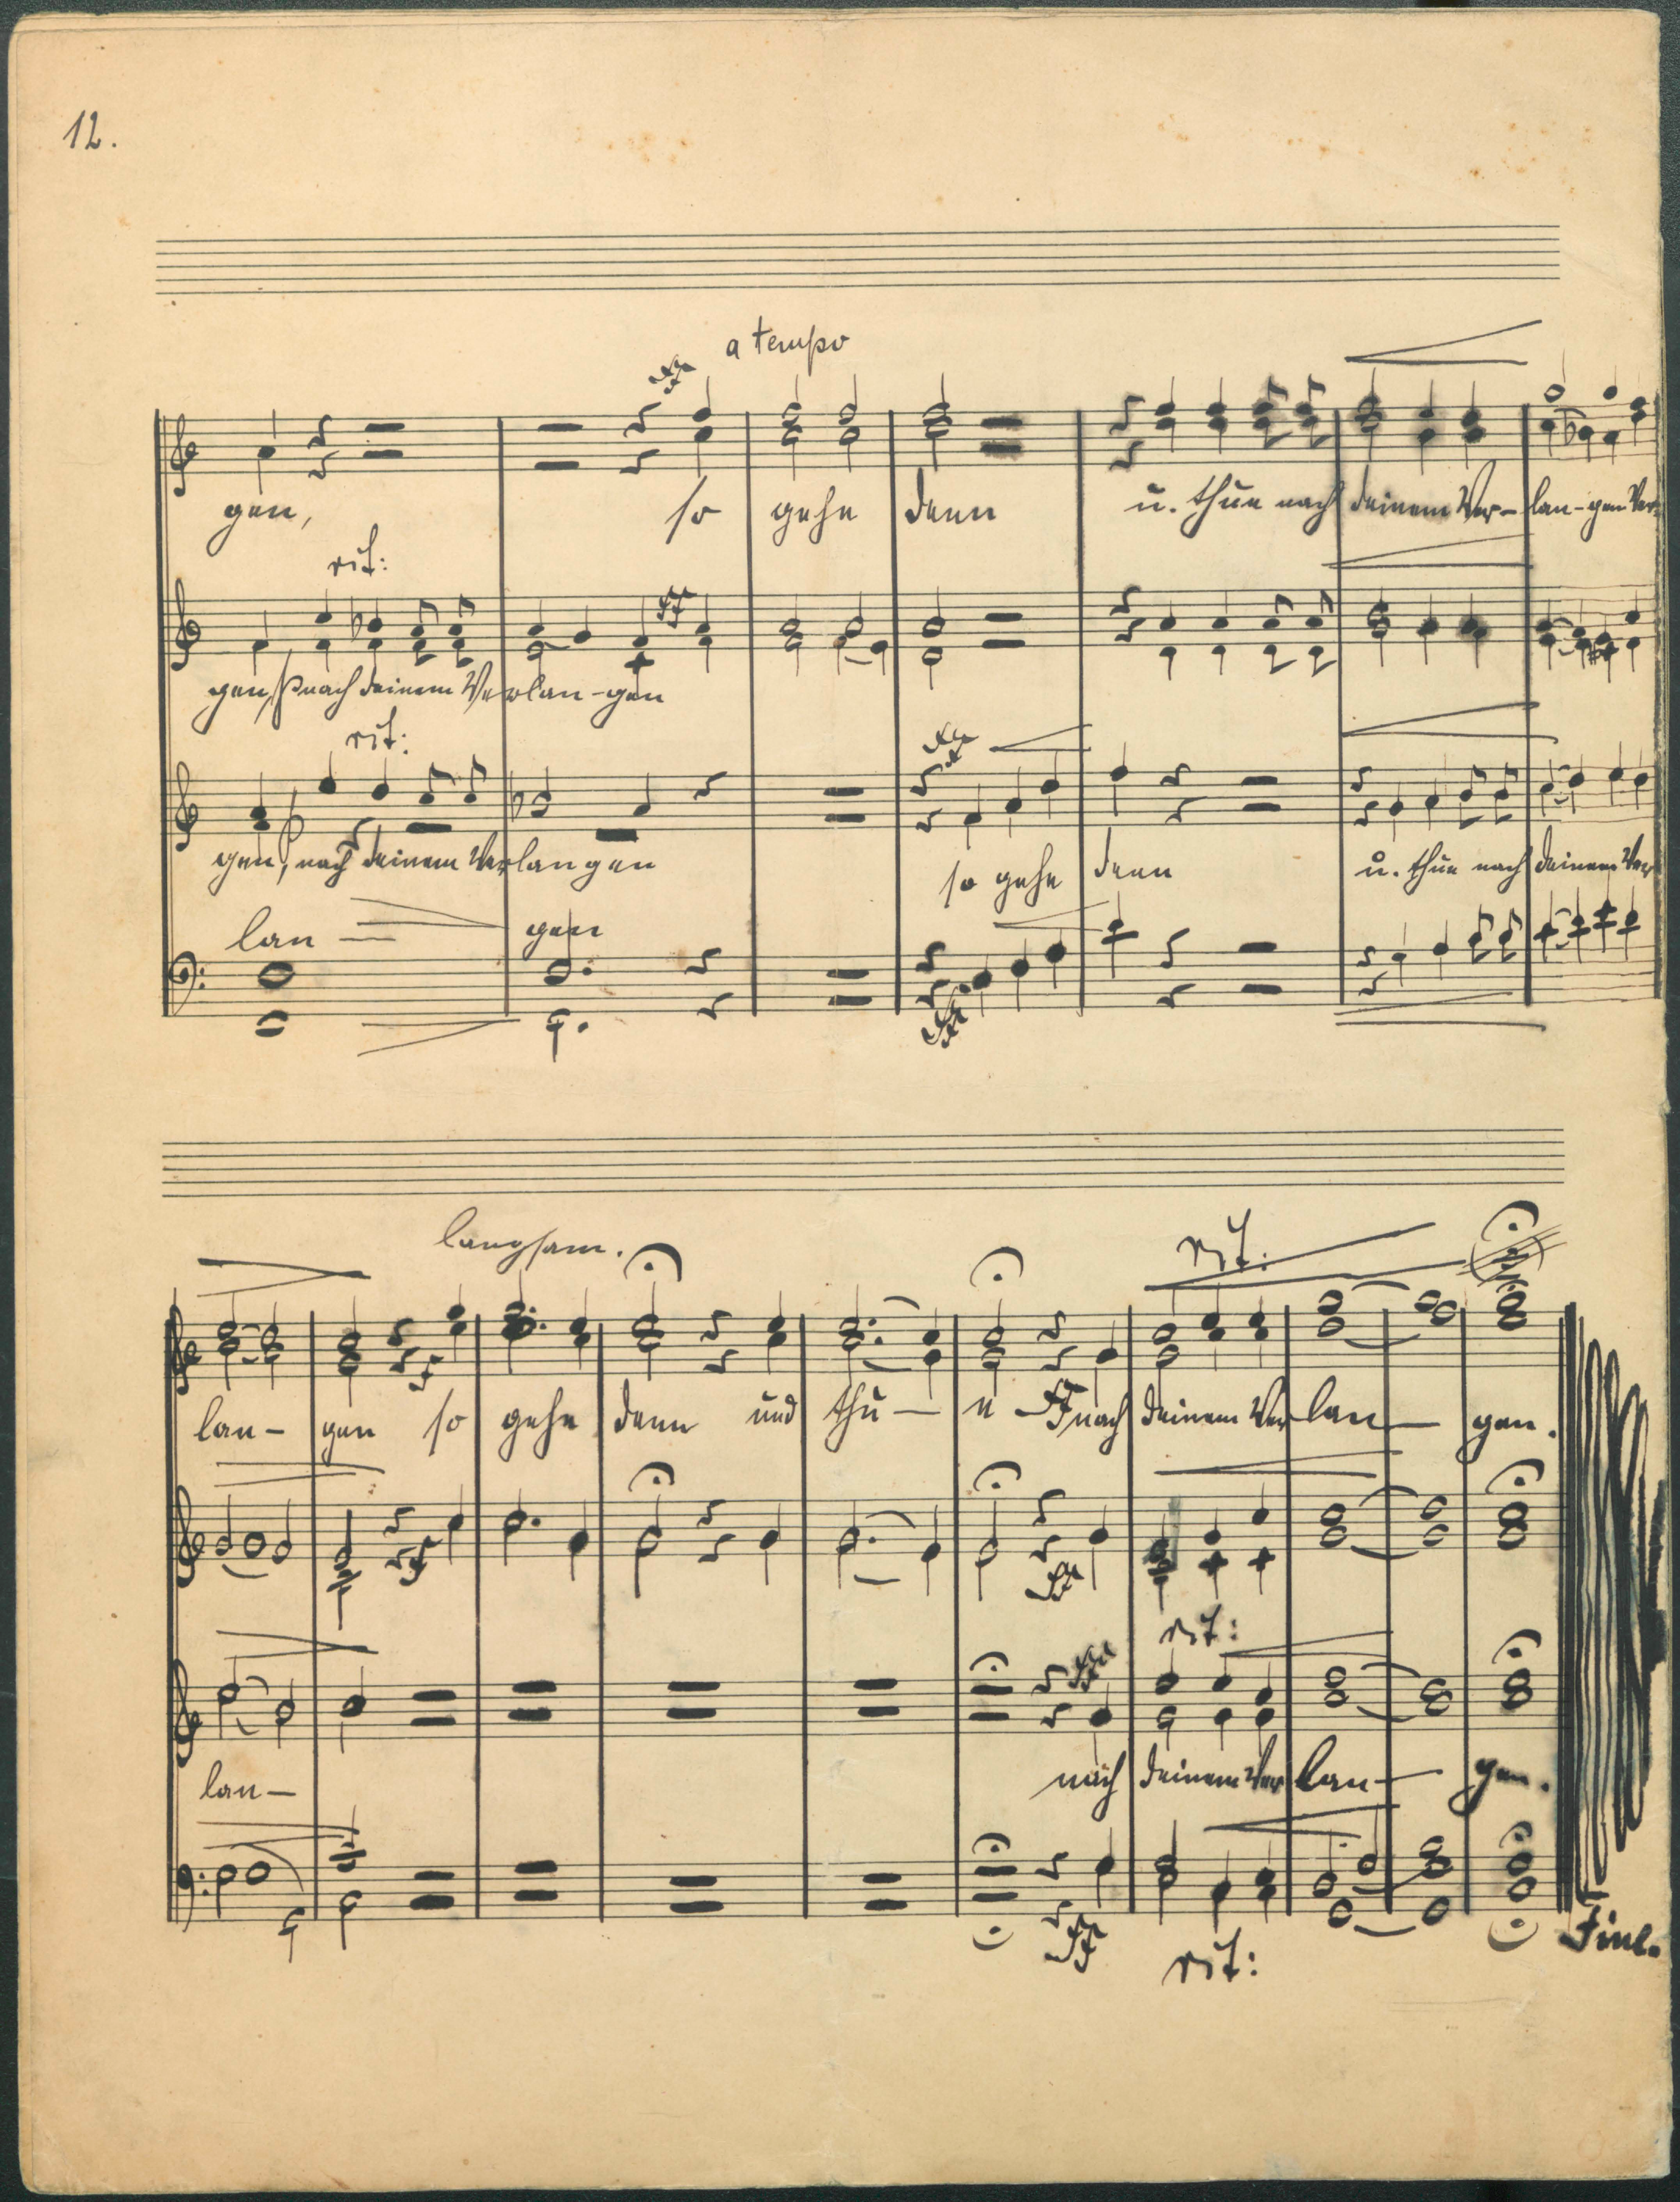 12.
a tempo
gen, so gehe denn ü. thue nach deinem Ver- lan-gen Ver-
rit:
gen, p nach deinem Verlan-gen
rit:
gen, nach deinem Verlangen so gehe denn u. thue nach deinem Ver
lan — gen
ff
langsam.
rit.
lan- gen so gehe denn und thu — e ff nach deinem Ver lan — gen.
rit:
lan- nach deinem Ver lan — gen.
ff
rit:
Fine.